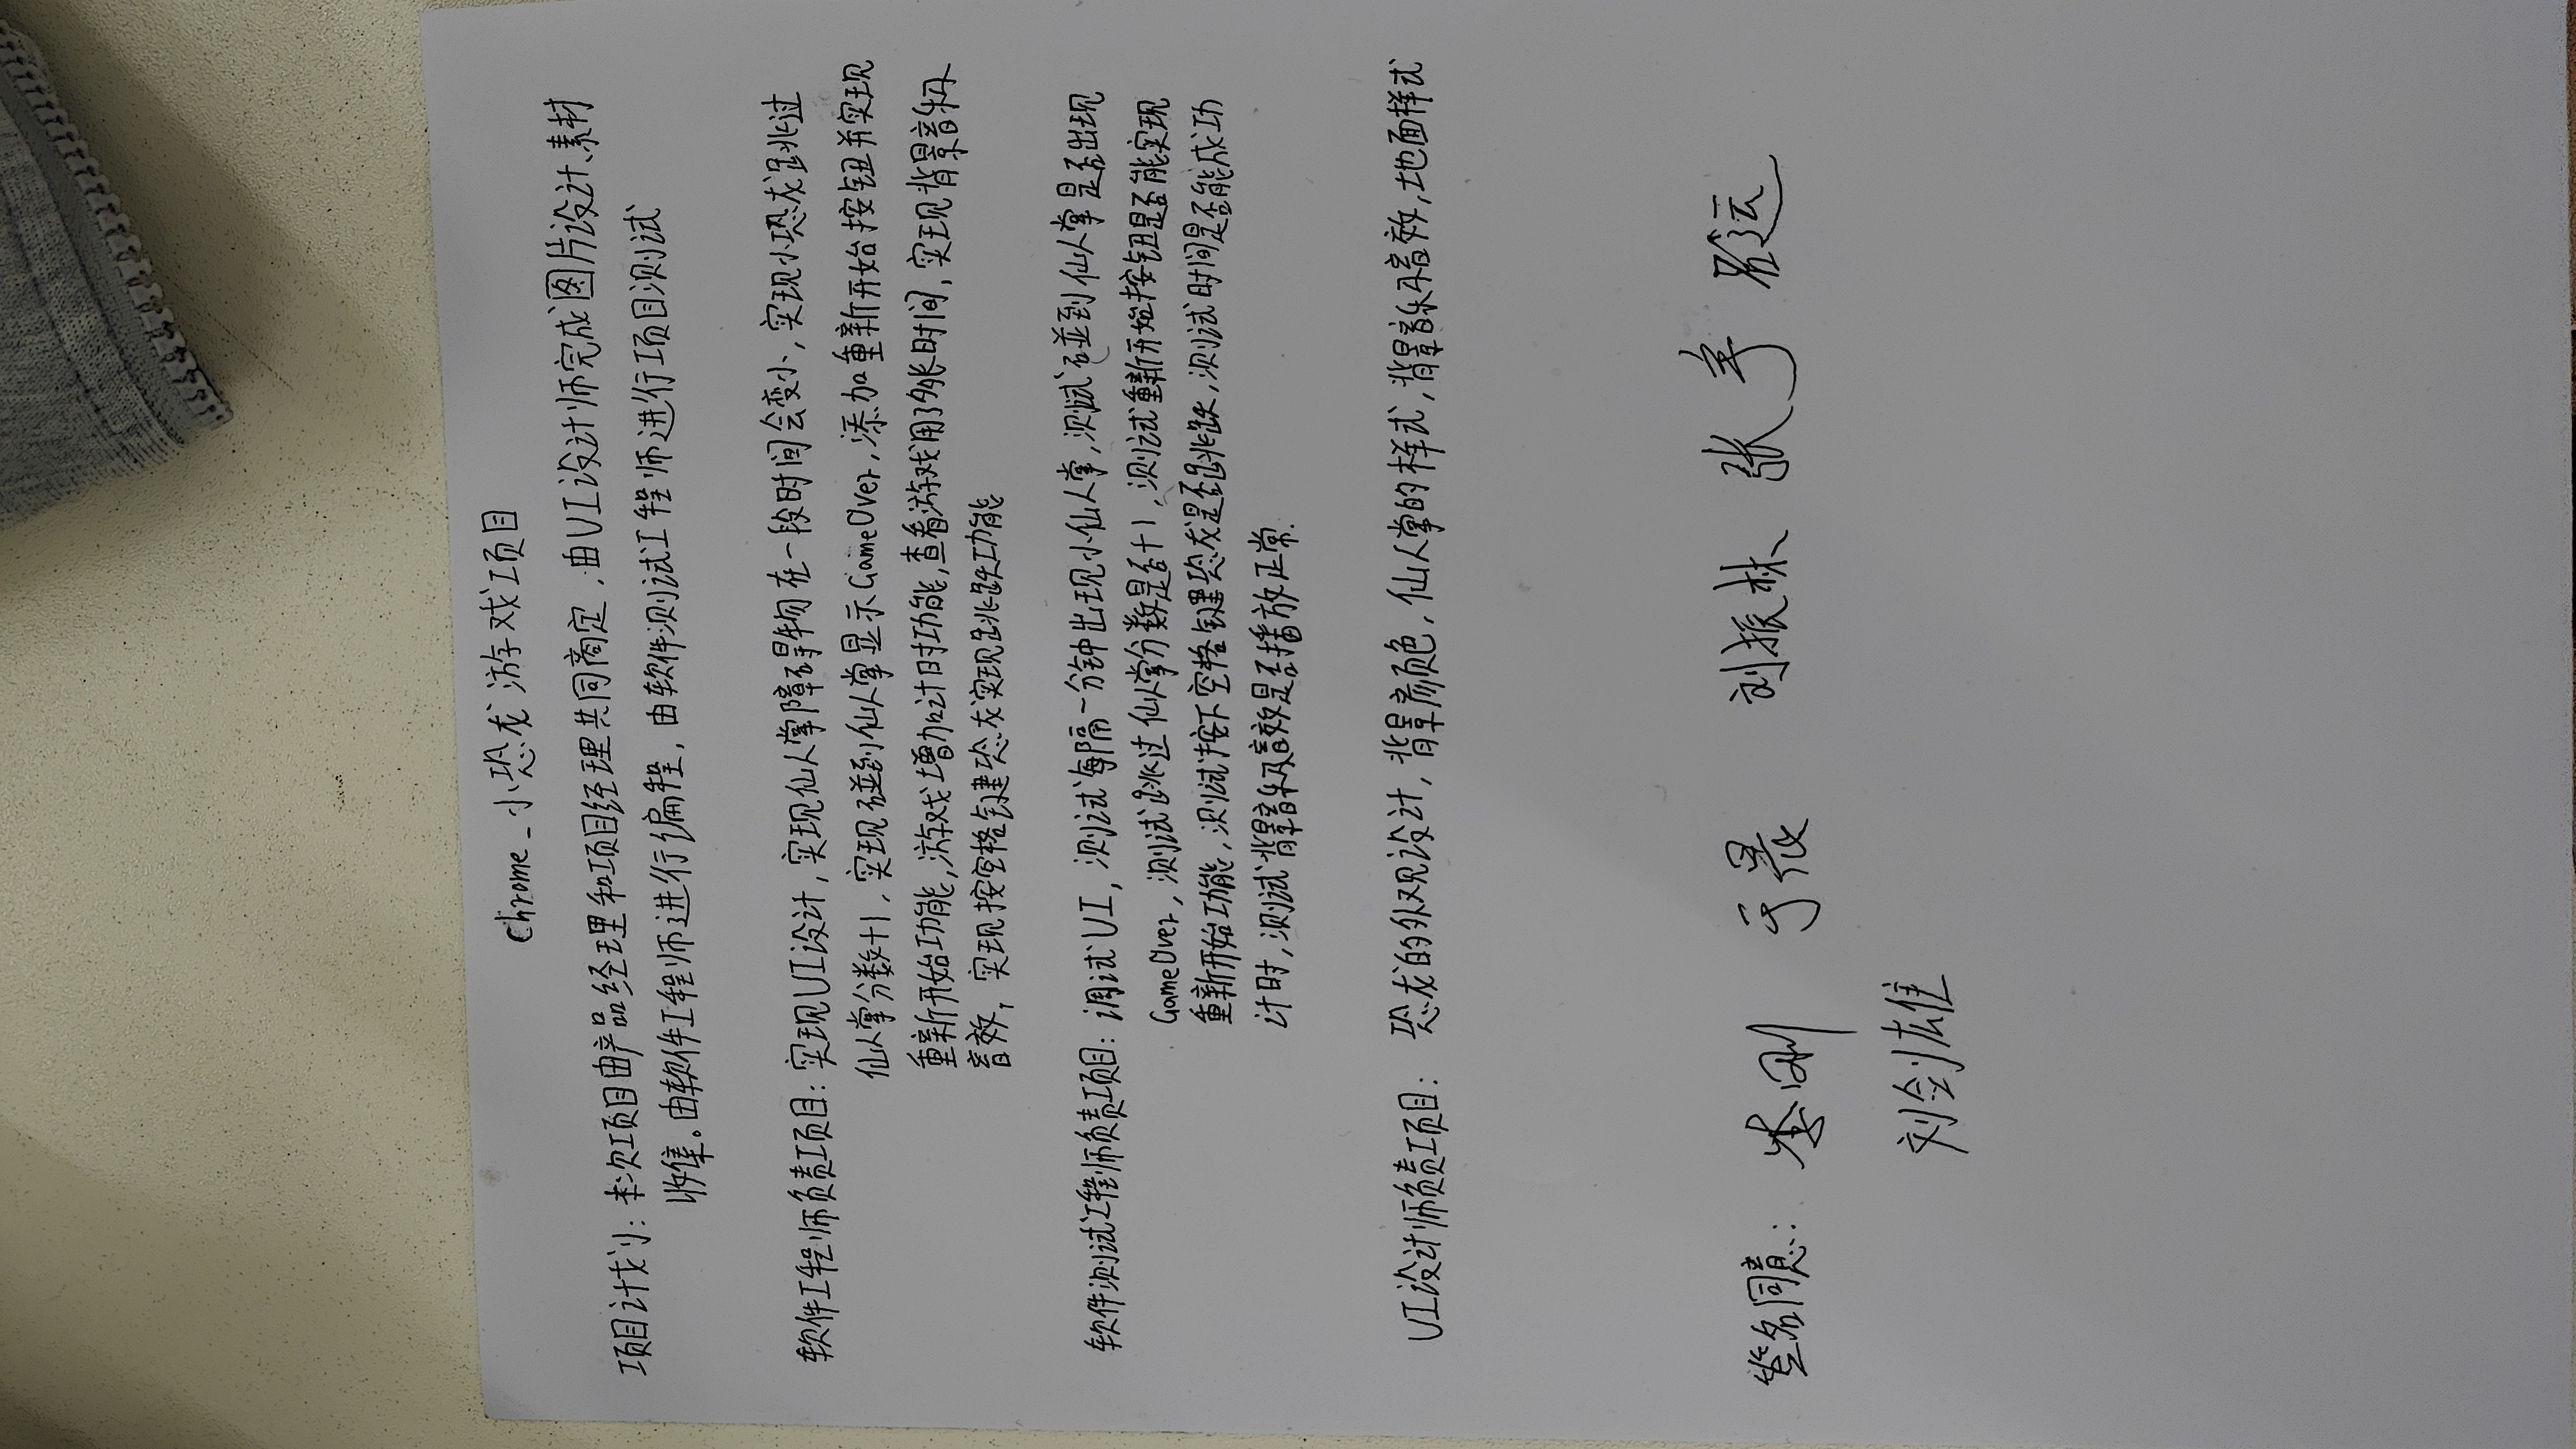 Chrome-小恐龙游戏项目
项目计划：本次项目由产品经理和项目经理共同商定，由UI设计师完成图片设计、素材
收集。由软件工程师进行编程，由软件测试工程师进行项目测试
软件工程师负责项目：实现UI设计，实现仙人掌障碍物在一段时间会变小，实现小恐龙跳过
仙人掌分数+1，实现碰到仙人掌显示GameOver，添加重新开始按钮并实现
重新开始功能，游戏增加计时功能，查看游戏用了多长时间，实现背景音乐及
音效，实现按空格键恐龙实现跳跃功能
软件测试工程师负责项目：调试UI，测试每隔一分钟出现小仙人掌，测试碰到仙人掌是否出现
GameOver，测试跳过仙人掌分数是否+1，测试重新开始按钮是否能实现
重新开始功能，测试按下空格键恐龙是否跳跃，测试时间是否能成功
计时，测试背景音乐及音效是否播放正常.
UI设计师负责项目：恐龙的外观设计，背景颜色，仙人掌的样式，背景音乐音效，地面样式
签名同意：李刚 于晟 刘振林 张宇
刘剑雄